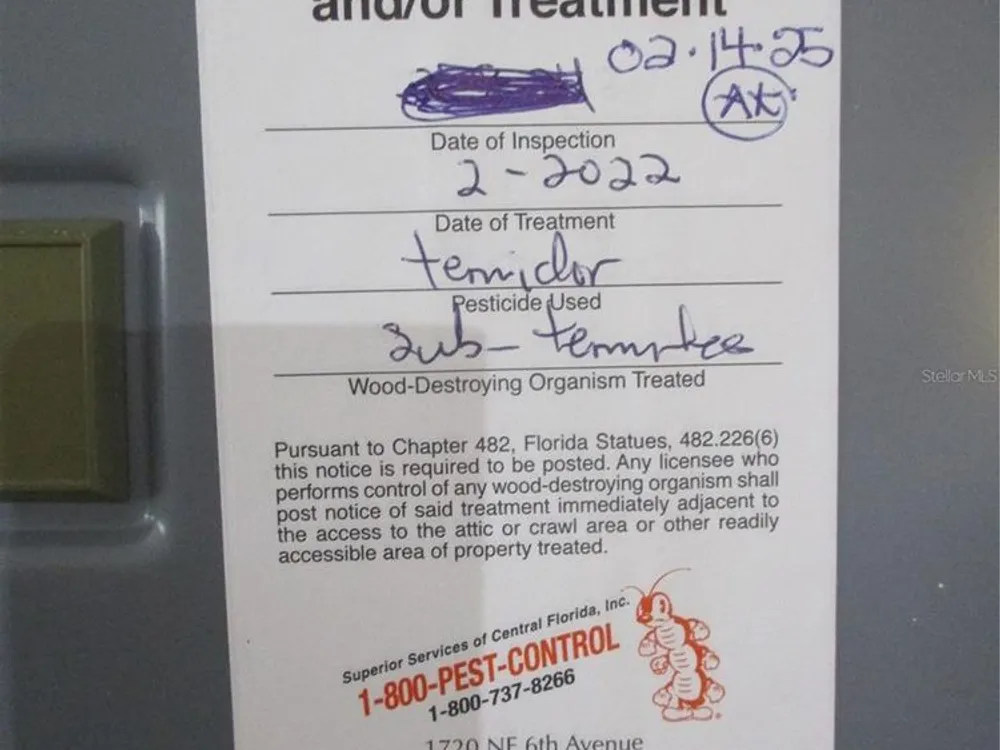 and/or Treatment
02.14.25
AK
Date of Inspection
2-2022
Date of Treatment
termidor
Pesticide Used
Sub-termites
Wood-Destroying Organism Treated
Pursuant to Chapter 482, Florida Statues, 482.226(6)
this notice is required to be posted. Any licensee who
performs control of any wood-destroying organism shall
post notice of said treatment immediately adjacent to
the access to the attic or crawl area or other readily
accessible area of property treated.
Superior Services of Central Florida, Inc.
1-800-PEST-CONTROL
1-800-737-8266
1720 NE 6th Avenue
Stellar MLS